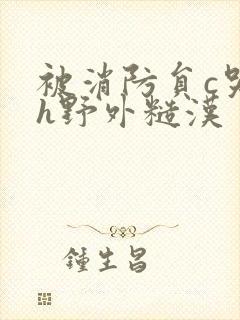 被消防貟c哭
h野外糙漢
鍾生昌